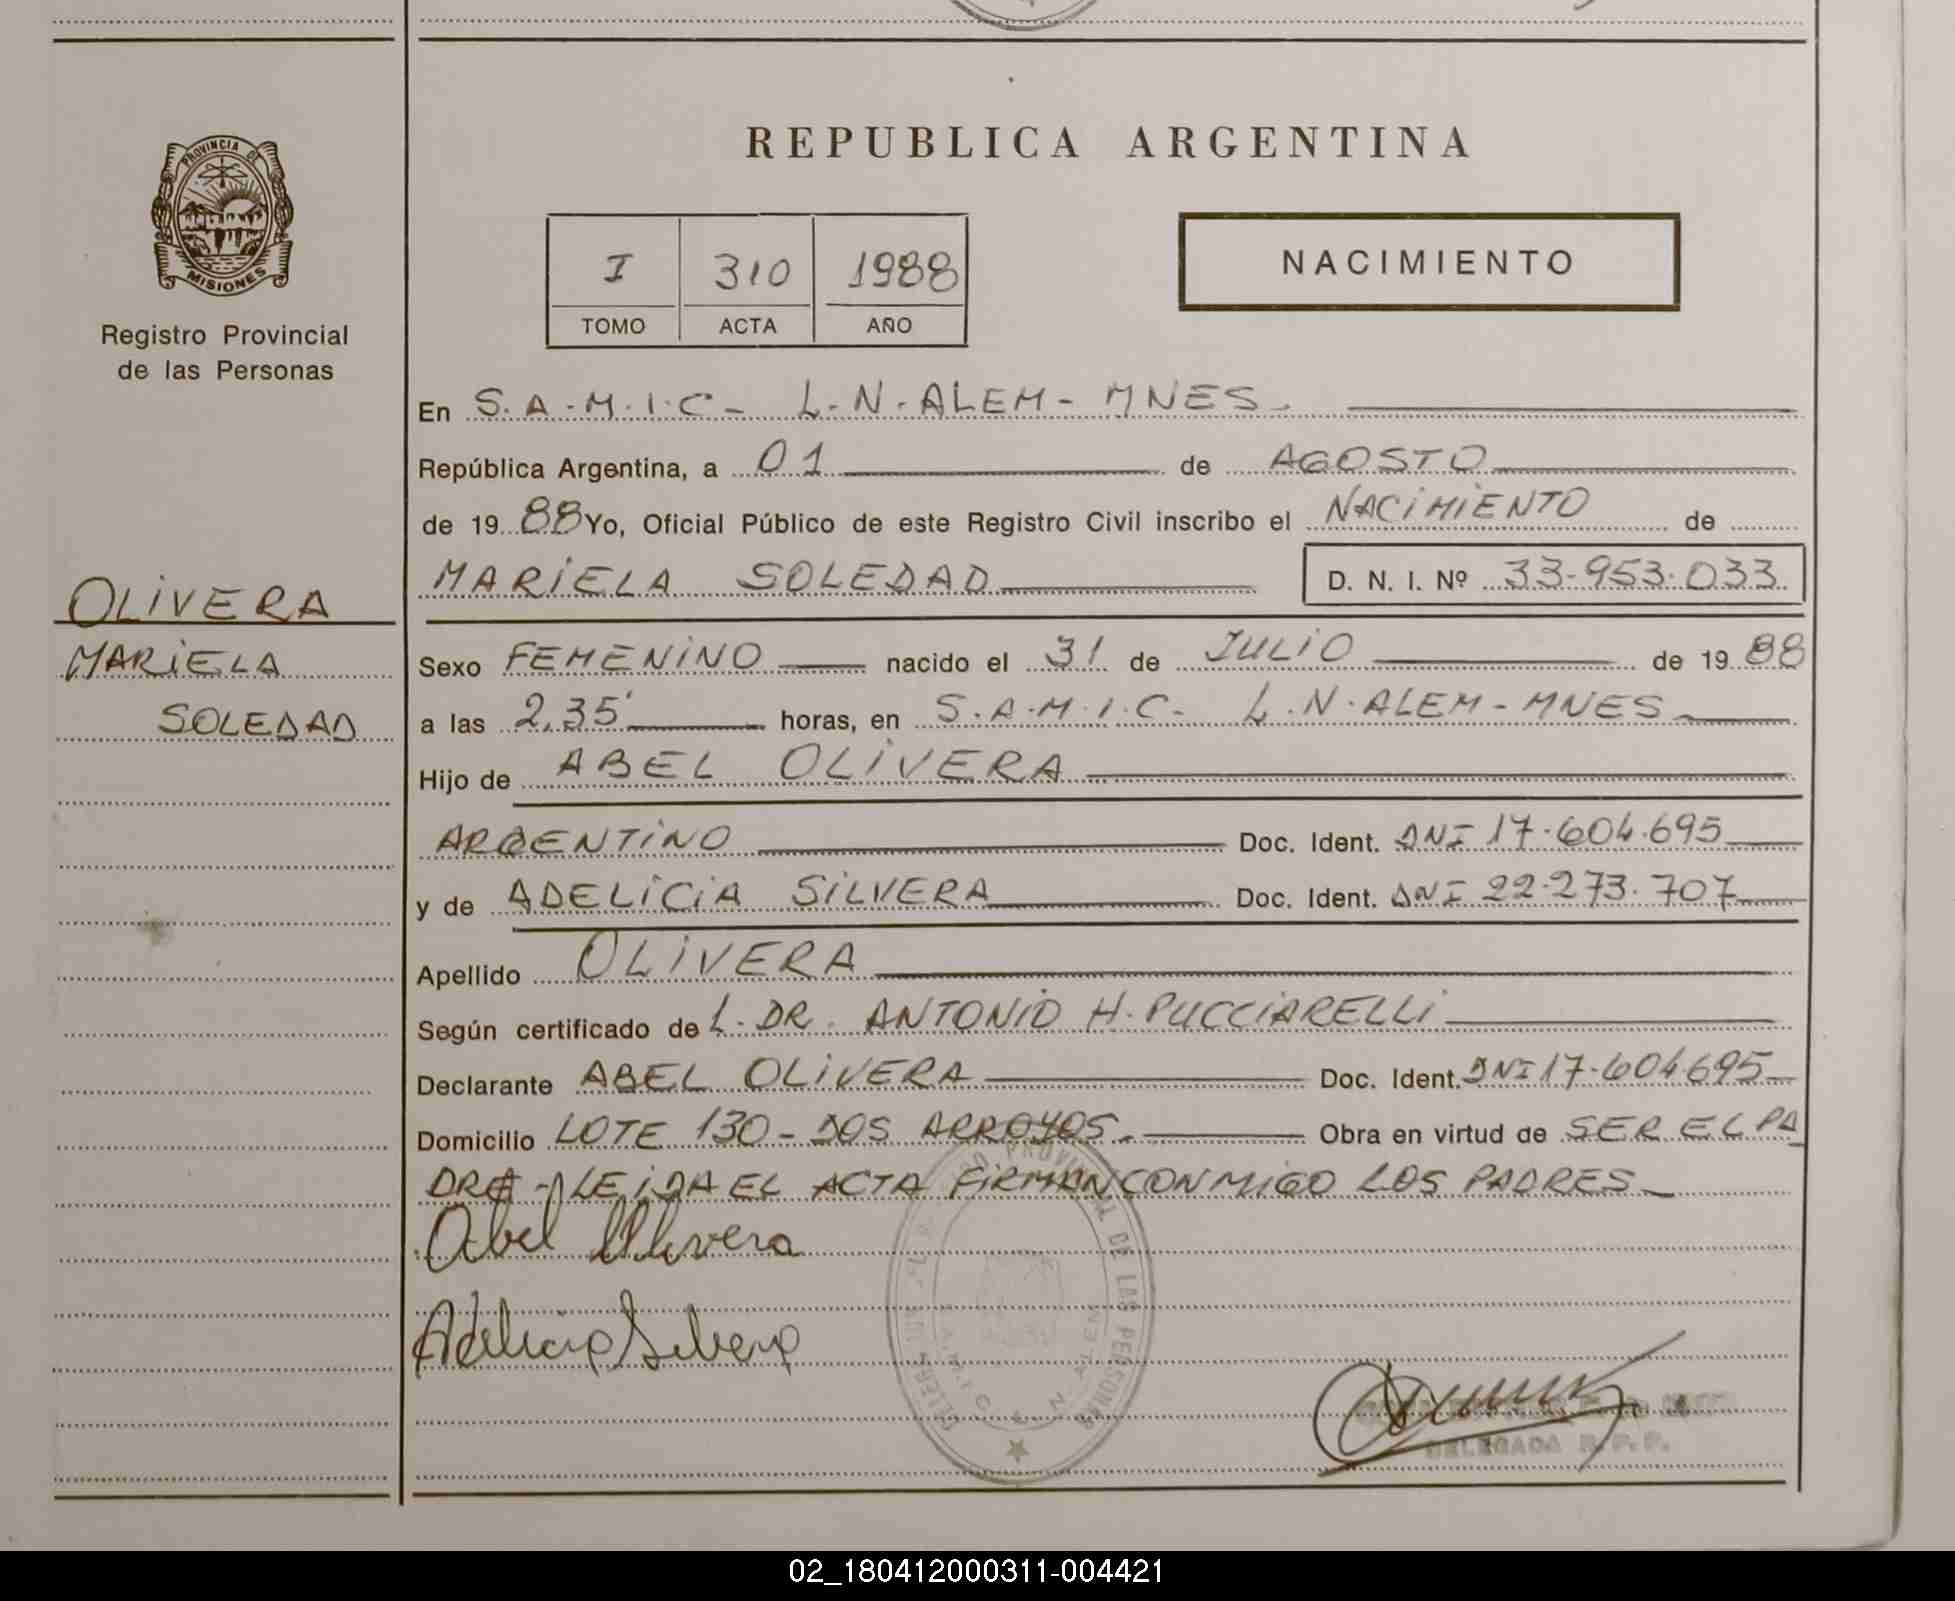 PROVINCIA DE
MISIONES
Registro Provincial
de las Personas
OLIVERA
MARIELA
SOLEDAD
REPUBLICA ARGENTINA
I 310 1988
TOMO ACTA AÑO
NACIMIENTO
En S.A.M.I.C- L.N.ALEM- MNES.
República Argentina, a 01 de AGOSTO
de 1988 Yo, Oficial Público de este Registro Civil inscribo el NACIMIENTO de
MARIELA SOLEDAD D. N. I. Nº 33-953.033
Sexo FEMENINO nacido el 31 de JULIO de 1988
a las 2,35' horas, en S.A.M.I.C- L.N.ALEM-MNES
Hijo de ABEL OLIVERA
ARGENTINO Doc. Ident. DNI 17.604.695
y de ADELICIA SILVERA Doc. Ident. DNI 22-273.707
Apellido OLIVERA
Según certificado de L. DR. ANTONIO H. PUCCIARELLI
Declarante ABEL OLIVERA Doc. Ident. DNI 17.604.695
Domicilio LOTE 130 - DOS ARROYOS. Obra en virtud de SER EL PA
DRE - LEIDA EL ACTA FIRMAN CONMIGO LOS PADRES
Abel Olivera
Adelicia Silvera
PROVINCIAL DE LAS PERSONAS
S.A.M.I.C. L. N. ALEM
DELEGADA R.P.P.
02_180412000311-004421